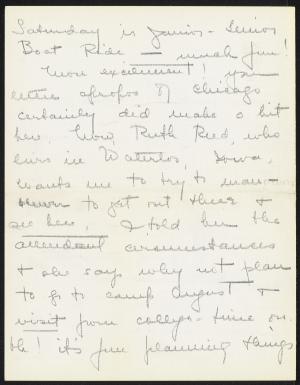 Saturday is Junior-Senior
Boat Ride — much fun!
More excitement! your
letter apropos of Chicago
certainly did make a hit
here. Now, Ruth Reed, who
lives in Waterloo, Iowa,
wants me to try to
to get out there &
see her. I told her the
attendant circumstances
& she says why not plan
to go to camp August &
visit from college-time on.
Oh! it's fun planning things